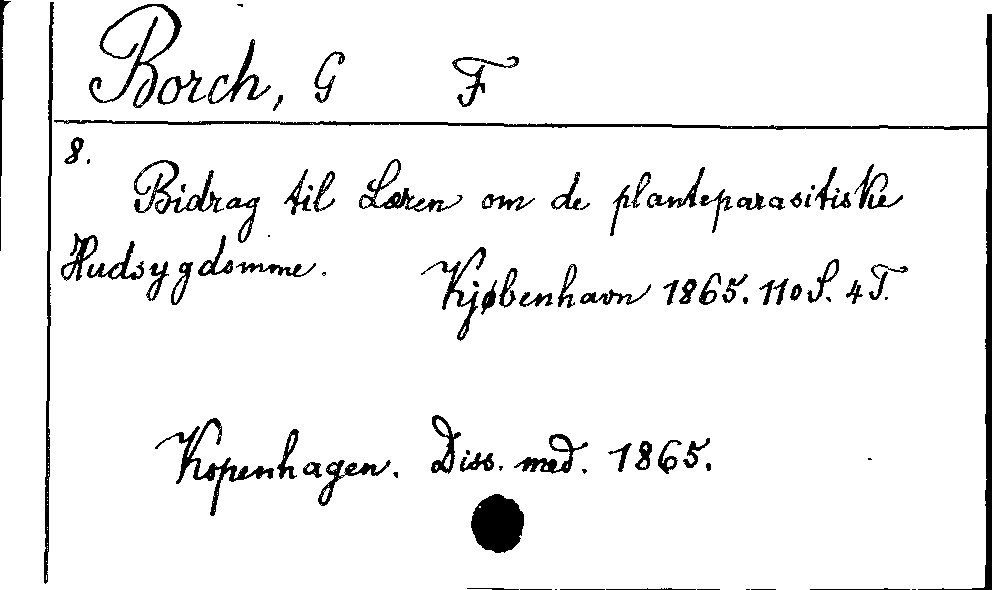 Borch, G F
8.
Bidrag til Læren om de planteparasitiske
Hudsygdomme.
Kjøbenhavn 1865. 110 S. 4 T.
Kopenhagen. Diss. med. 1865.